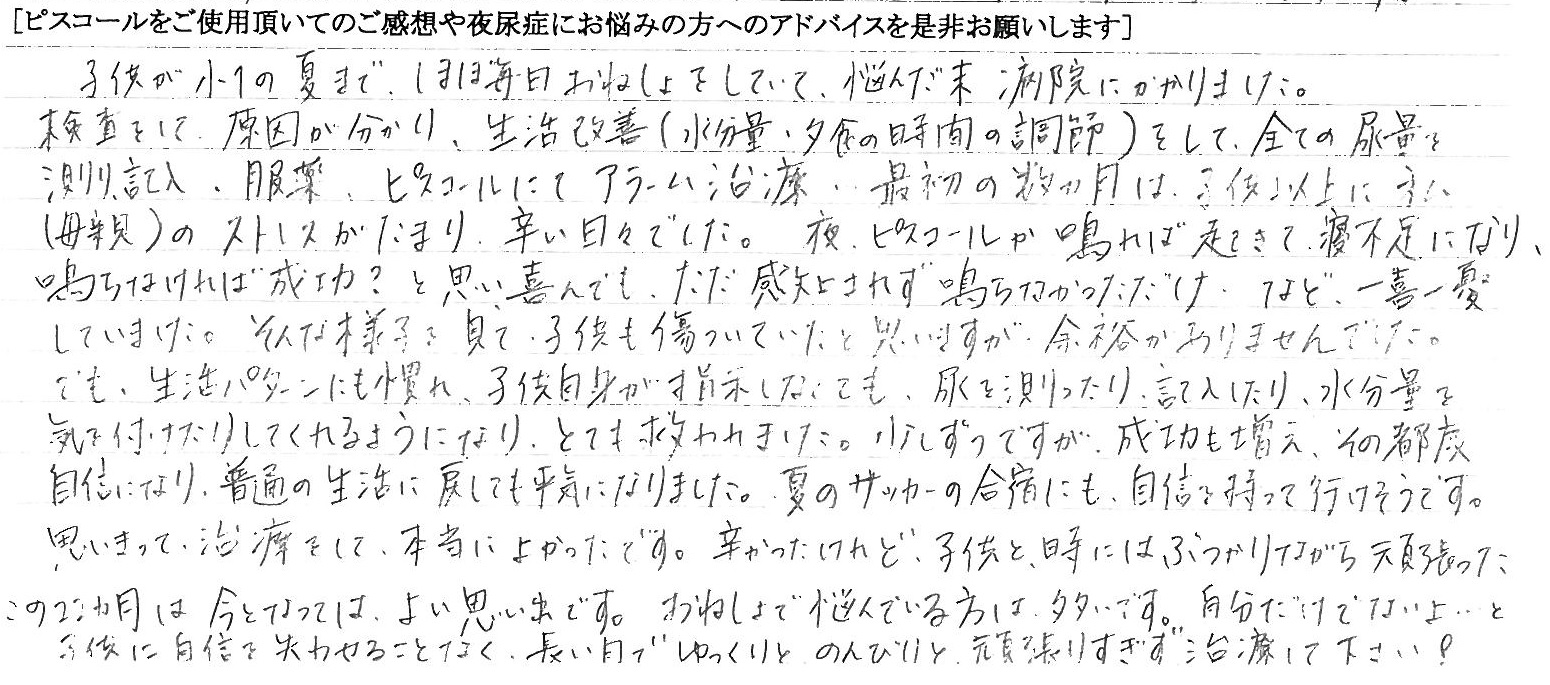 [ピスコールをご使用頂いてのご感想や夜尿症にお悩みの方へのアドバイスを是非お願いします]
子供が小1の夏まで、ほぼ毎日おねしょをしていて、悩んだ末 病院にかかりました。
検査をして、原因が分かり、生活改善(水分量・夕食の時間の調節)をして、全ての尿量を
測り、記入、服薬、ピスコールにてアラーム治療‥最初の数ヵ月は、子供以上に私
(母親)のストレスがたまり、辛い日々でした。夜、ピスコールが鳴れば起きて、寝不足になり、
鳴らなければ成功?と思い喜んでも、ただ感知されず鳴らなかっただけ‥など、一喜一憂
していました。そんな様子を見て、子供も傷ついていたと思いますが、余裕がありませんでした。
でも、生活パターンにも慣れ、子供自身が指示しなくても、尿を測ったり、記入したり、水分量を
気を付けたりしてくれるようになり、とても救われました。少しずつですが、成功も増え、その都度
自信になり、普通の生活に戻しても平気になりました。夏のサッカーの合宿にも、自信を持って行けそうです。
思いきって、治療をして、本当によかったです。辛かったけれど、子供と、時にはぶつかりながら頑張った
この22ヵ月は今となっては、よい思い出です。おねしょで悩んでいる方は、多いです。自分だけでないよ‥と
子供に自信を失わせることなく、長い目でゆっくりと のんびりと、頑張りすぎず治療して下さい!